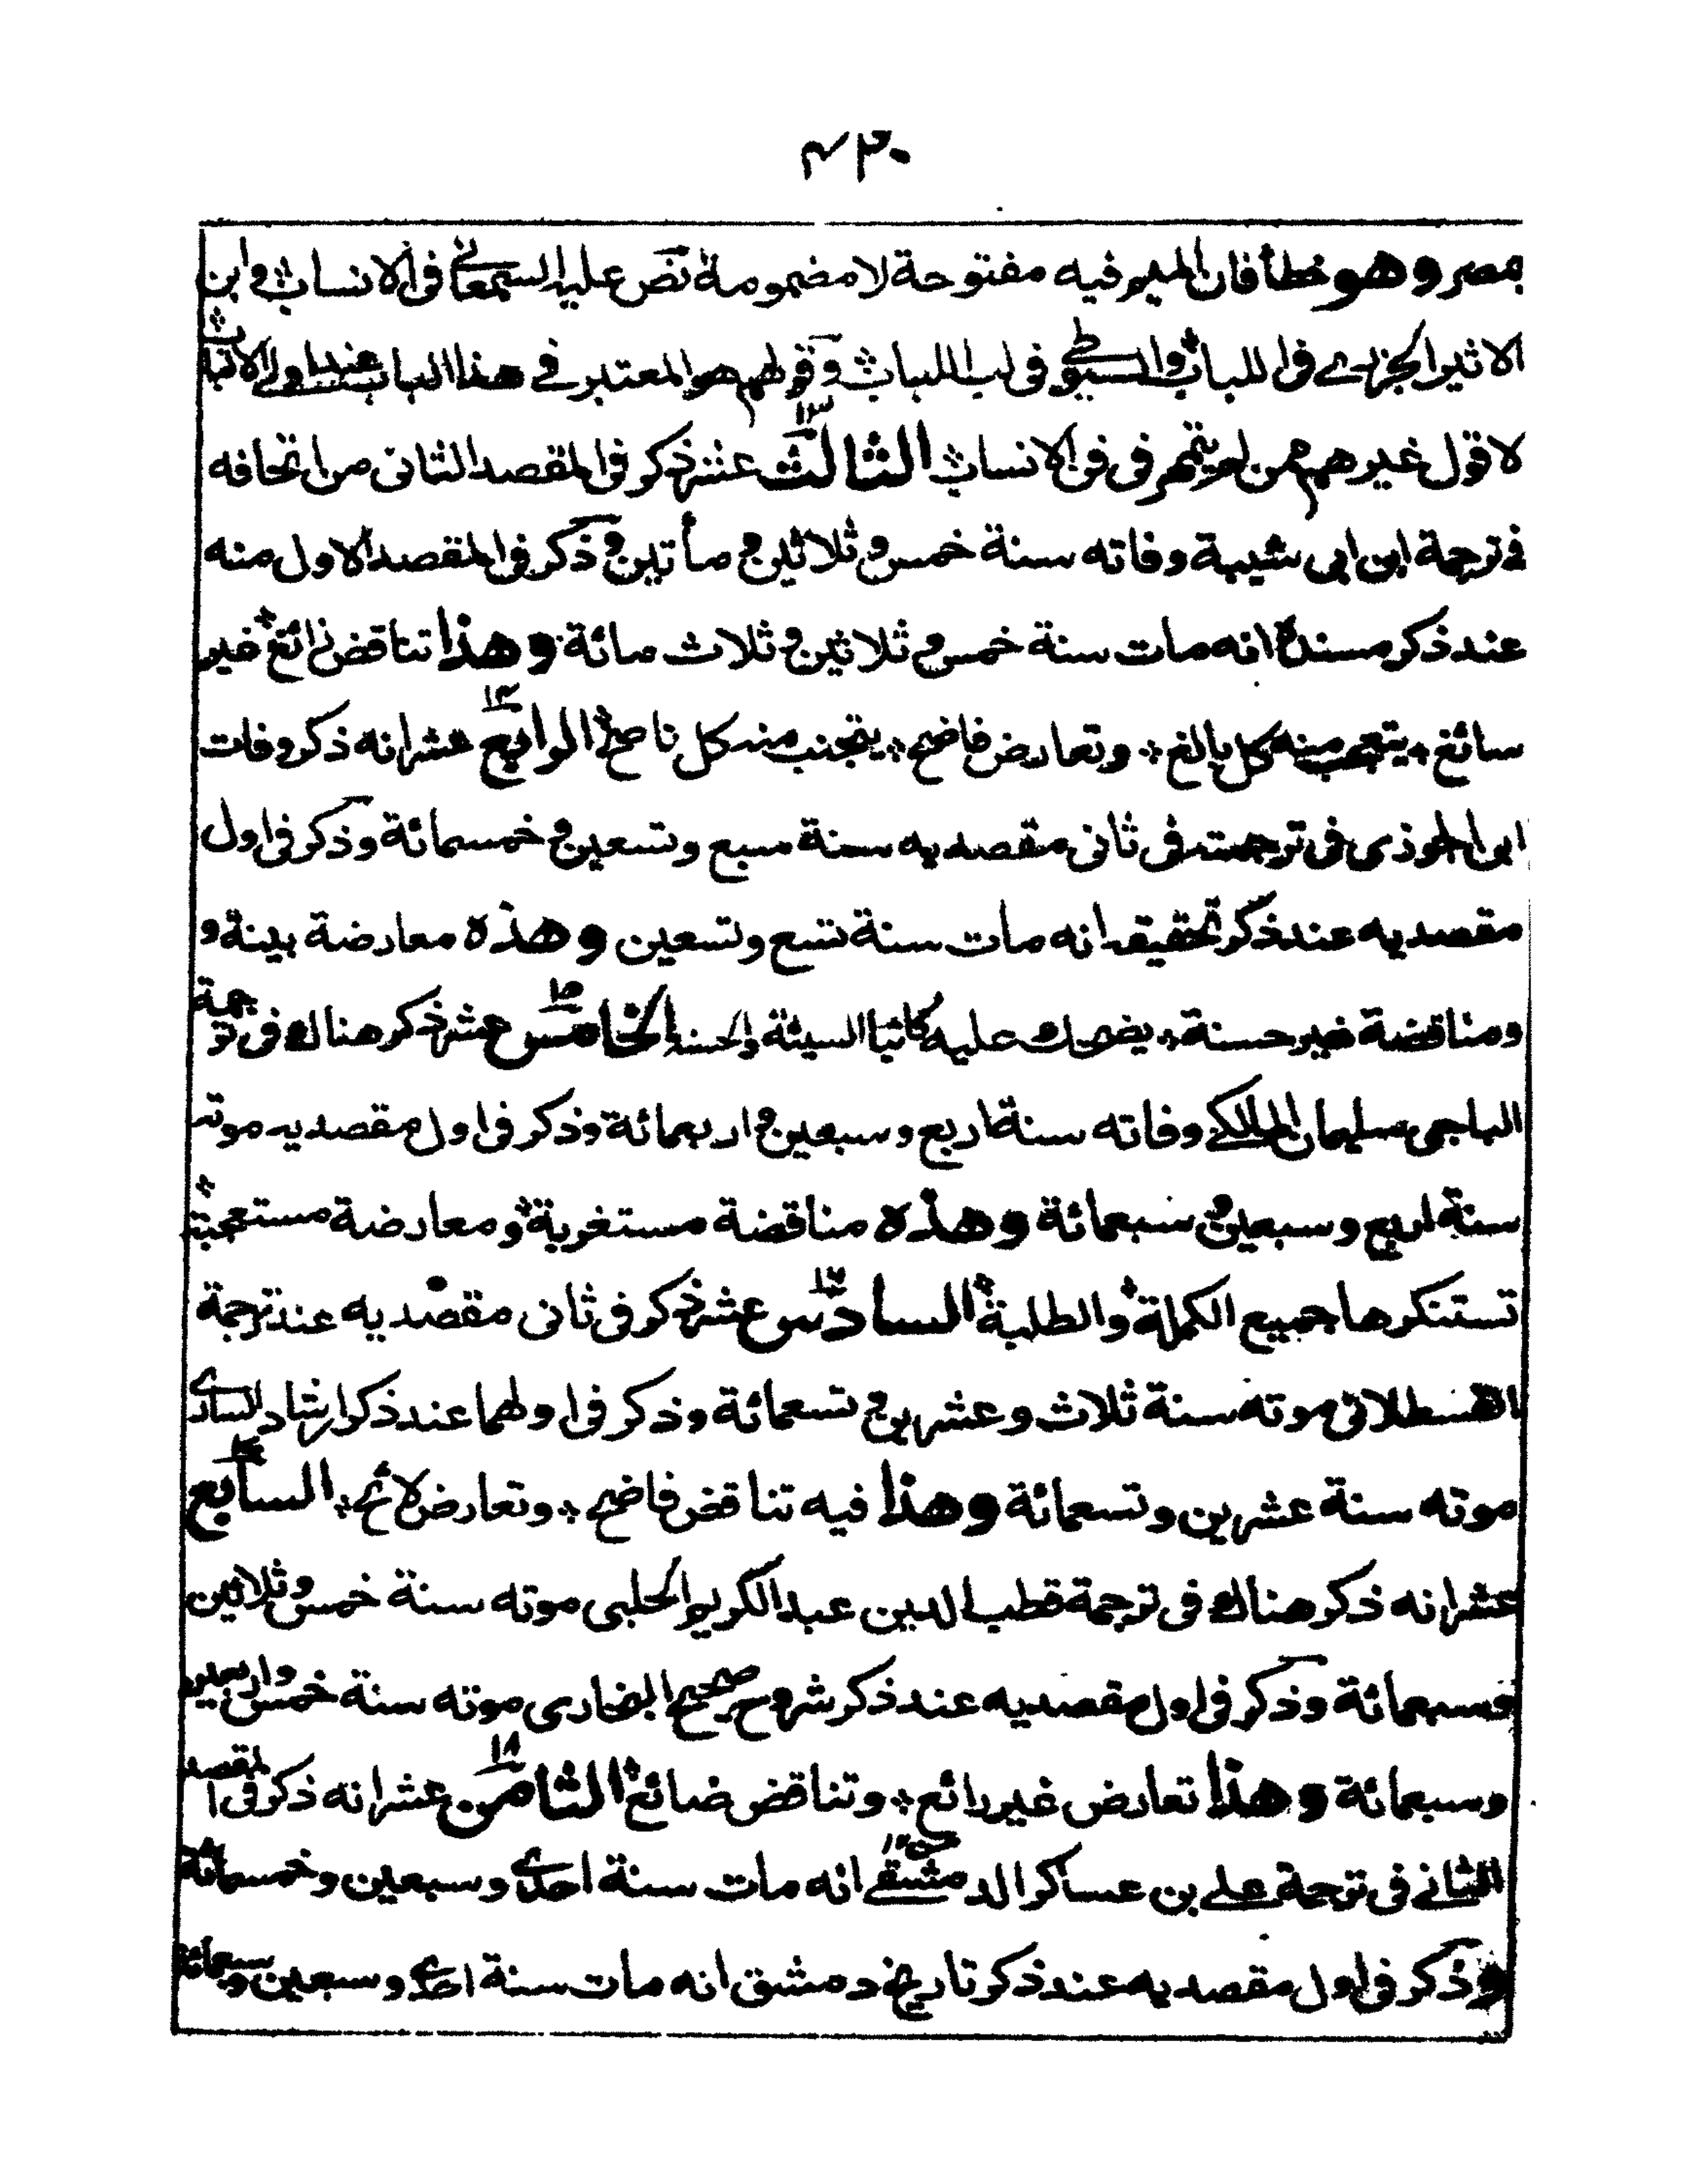 ٤٣٠
بمصر وهو خطأ فان الميم فيه مفتوحة لا مضمومة نص عليه السمعاني في الانساب وابن
الاثير الجزري في اللباب والسيوطي في لب اللباب وقولهم هو المعتبر في هذا الباب عند اولي الالباب
لا قول غيرهم ممن لم يتمهر في فن الانساب الثالث عشر ذكر في المقصد الثاني من اتحافه
١٣
في ترجمة ابن ابي شيبة وفاته سنة خمس وثلاثين ومأتين وذكر في المقصد الاول منه
عند ذكر مسنده انه مات سنة خمس وثلاثين وثلاث مائة وهذا تناقض زائغ غير
سائغ يتعجب منه كل بالغ وتعارض فاضح يتجنب منه كل ناصح الرابع عشر انه ذكر وفات
١٤
ابن الجوذي في ترجمته في ثاني مقصديه سنة سبع وتسعين وخمسمائة وذكر في اول
مقصديه عند ذكر تحقيقه انه مات سنة تسع وتسعين وهذه معارضة بينة و
ومناقضة غير حسنة يضحك عليه كاتبا السيئة والحسنة الخامس عشر ذكر هناك في ترجمة
١٥
الباجي سليمان المالكي وفاته سنة اربع وسبعين واربعمائة وذكر في اول مقصديه موته
سنة اربع وسبعين وسبعمائة وهذه مناقضة مستغربة ومعارضة مستعجبة
تستنكرها جميع الكملة والطلبة السادس عشر ذكر في ثاني مقصديه عند ترجمة
١٦
القسطلاني موته سنة ثلاث وعشرين وتسعمائة وذكر في اولهما عند ذكر ارشاد الساري
موته سنة عشرين وتسعمائة وهذا فيه تناقض فاضح وتعارض لائح السابع
١٧
عشر انه ذكر هناك في ترجمة قطب الدين عبد الكريم الحلبي موته سنة خمس وثلاثين
وسبعمائة وذكر في اول مقصديه عند ذكر شروح صحيح البخاري موته سنة خمس واربعين
وسبعمائة وهذا تعارض غير رائع وتناقض ضائع الثامن عشر انه ذكر في المقصد
١٨
الثاني في ترجمة علي بن عساكر الدمشقي انه مات سنة احدى وسبعين وخمسمائة
وذكر في اول مقصديه عند ذكر تاريخ دمشق انه مات سنة احدى وسبعين وسبعمائة